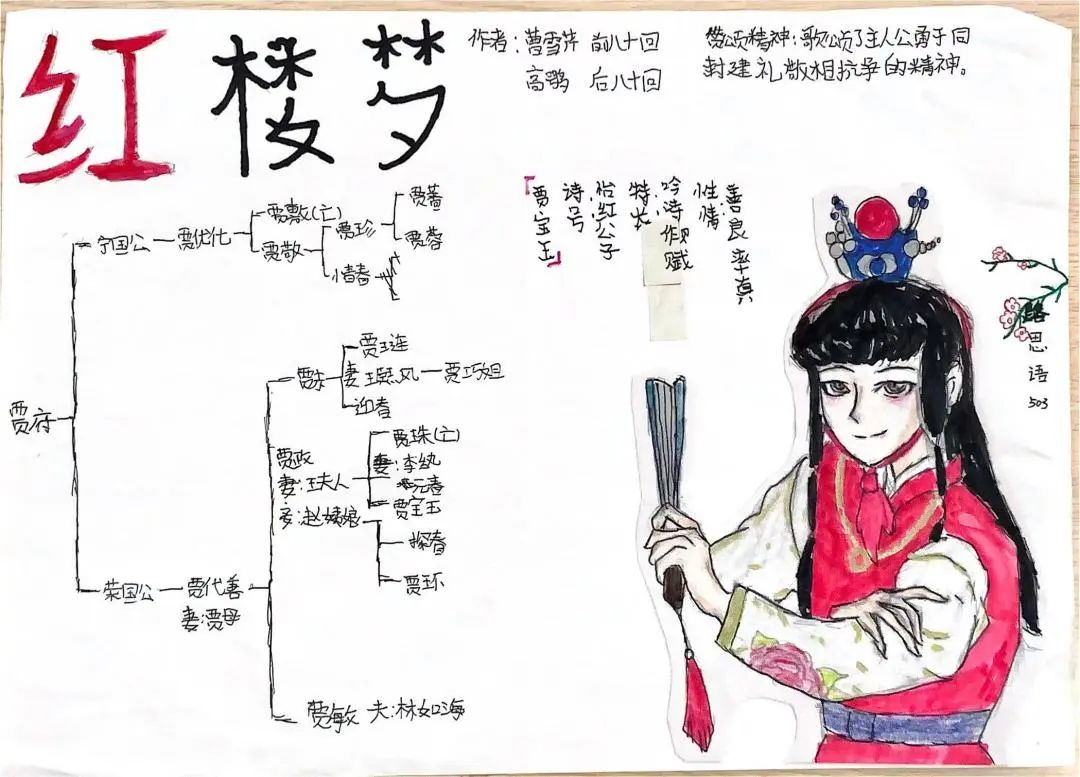 红楼梦
作者：曹雪芹 前八十回
高鹗 后八十回
赞颂精神：歌颂了主人公勇于同
封建礼教相抗争的精神。
「贾宝玉」
诗号
怡红公子
特长
吟诗作赋
性情
善良率真
思语
503
贾府
宁国公
贾代化
贾敷(亡)
贾敬
贾珍
惜春
贾蔷
贾蓉
荣国公
贾代善
妻:贾母
贾赦
贾琏
妻王熙凤
贾巧姐
迎春
贾政
妻:王夫人
妾:赵姨娘
贾珠(亡)
妻:李纨
元春
贾宝玉
探春
贾环
贾敏 夫:林如海